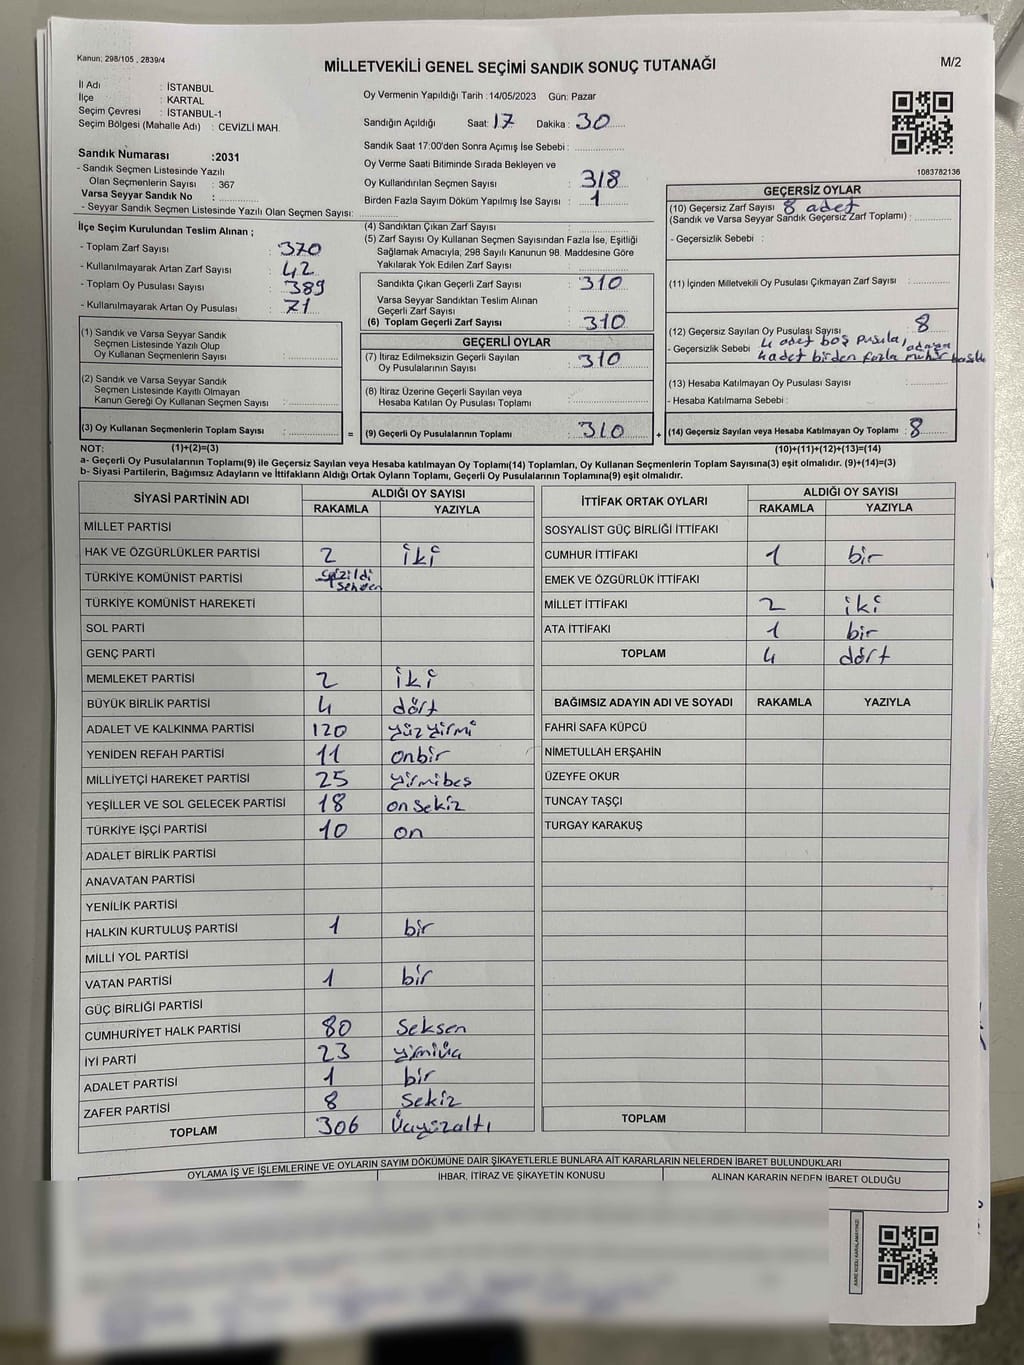 Kanun: 298/105 , 2839/4
MİLLETVEKİLİ GENEL SEÇİMİ SANDIK SONUÇ TUTANAĞI
M/2
İl Adı : İSTANBUL
İlçe : KARTAL
Seçim Çevresi : İSTANBUL-1
Seçim Bölgesi (Mahalle Adı) : CEVİZLİ MAH.
Oy Vermenin Yapıldığı Tarih :14/05/2023 Gün: Pazar
Sandığın Açıldığı Saat: 17 Dakika : 30
Sandık Saat 17:00'den Sonra Açımış İse Sebebi :
Oy Verme Saati Bitiminde Sırada Bekleyen ve
Oy Kullandırılan Seçmen Sayısı : 318
Birden Fazla Sayım Döküm Yapılmış İse Sayısı : 1
1083782136
Sandık Numarası :2031
- Sandık Seçmen Listesinde Yazılı
Olan Seçmenlerin Sayısı : 367
Varsa Seyyar Sandık No :
- Seyyar Sandık Seçmen Listesinde Yazılı Olan Seçmen Sayısı:
İlçe Seçim Kurulundan Teslim Alınan ;
- Toplam Zarf Sayısı : 370
- Kullanılmayarak Artan Zarf Sayısı : 42
- Toplam Oy Pusulası Sayısı : 389
- Kullanılmayarak Artan Oy Pusulası : 71
(1) Sandık ve Varsa Seyyar Sandık
Seçmen Listesinde Yazılı Olup
Oy Kullanan Seçmenlerin Sayısı :
(2) Sandık ve Varsa Seyyar Sandık
Seçmen Listesinde Kayıtlı Olmayan
Kanun Gereği Oy Kullanan Seçmen Sayısı :
(3) Oy Kullanan Seçmenlerin Toplam Sayısı :
=
(4) Sandıktan Çıkan Zarf Sayısı :
(5) Zarf Sayısı Oy Kullanan Seçmen Sayısından Fazla İse, Eşitliği
Sağlamak Amacıyla, 298 Sayılı Kanunun 98. Maddesine Göre
Yakılarak Yok Edilen Zarf Sayısı :
Sandıkta Çıkan Geçerli Zarf Sayısı : 310
Varsa Seyyar Sandıktan Teslim Alınan
Geçerli Zarf Sayısı :
(6) Toplam Geçerli Zarf Sayısı : 310
GEÇERLİ OYLAR
(7) İtiraz Edilmeksizin Geçerli Sayılan
Oy Pusulalarının Sayısı : 310
(8) İtiraz Üzerine Geçerli Sayılan veya
Hesaba Katılan Oy Pusulası Toplamı :
(9) Geçerli Oy Pusulalarının Toplamı : 310
+
GEÇERSİZ OYLAR
(10) Geçersiz Zarf Sayısı 8 adet
(Sandık ve Varsa Seyyar Sandık Geçersiz Zarf Toplamı) :
- Geçersizlik Sebebi :
(11) İçinden Milletvekili Oy Pusulası Çıkmayan Zarf Sayısı :
(12) Geçersiz Sayılan Oy Pusulası Sayısı : 8
- Geçersizlik Sebebi 4 adet boş pusula,
4 adet birden fazla mühür
(13) Hesaba Katılmayan Oy Pusulası Sayısı :
- Hesaba Katılmama Sebebi :
(14) Geçersiz Sayılan veya Hesaba Katılmayan Oy Toplamı : 8
NOT: (1)+(2)=(3)
(10)+(11)+(12)+(13)=(14)
a- Geçerli Oy Pusulalarının Toplamı(9) ile Geçersiz Sayılan veya Hesaba katılmayan Oy Toplamı(14) Toplamları, Oy Kullanan Seçmenlerin Toplam Sayısına(3) eşit olmalıdır. (9)+(14)=(3)
b- Siyasi Partilerin, Bağımsız Adayların ve İttifakların Aldığı Ortak Oyların Toplamı, Geçerli Oy Pusulalarının Toplamına(9) eşit olmalıdır.
SİYASİ PARTİNİN ADI ALDIĞI OY SAYISI
RAKAMLA YAZIYLA
MİLLET PARTİSİ
HAK VE ÖZGÜRLÜKLER PARTİSİ 2 iki
TÜRKİYE KOMÜNİST PARTİSİ
TÜRKİYE KOMÜNİST HAREKETİ
SOL PARTİ
GENÇ PARTİ
MEMLEKET PARTİSİ 2 iki
BÜYÜK BİRLİK PARTİSİ 4 dört
ADALET VE KALKINMA PARTİSİ 120 yüzyirmi
YENİDEN REFAH PARTİSİ 11 onbir
MİLLİYETÇİ HAREKET PARTİSİ 25 yirmibeş
YEŞİLLER VE SOL GELECEK PARTİSİ 18 on sekiz
TÜRKİYE İŞÇİ PARTİSİ 10 on
ADALET BİRLİK PARTİSİ
ANAVATAN PARTİSİ
YENİLİK PARTİSİ
HALKIN KURTULUŞ PARTİSİ 1 bir
MİLLİ YOL PARTİSİ
VATAN PARTİSİ 1 bir
GÜÇ BİRLİĞİ PARTİSİ
CUMHURİYET HALK PARTİSİ 80 Seksen
İYİ PARTİ 23 yirmiüç
ADALET PARTİSİ 1 bir
ZAFER PARTİSİ 8 Sekiz
TOPLAM 306 Üçyüzaltı
İTTİFAK ORTAK OYLARI ALDIĞI OY SAYISI
RAKAMLA YAZIYLA
SOSYALİST GÜÇ BİRLİĞİ İTTİFAKI
CUMHUR İTTİFAKI 1 bir
EMEK VE ÖZGÜRLÜK İTTİFAKI
MİLLET İTTİFAKI 2 iki
ATA İTTİFAKI 1 bir
TOPLAM 4 dört
BAĞIMSIZ ADAYIN ADI VE SOYADI RAKAMLA YAZIYLA
FAHRİ SAFA KÜPCÜ
NİMETULLAH ERŞAHİN
ÜZEYFE OKUR
TUNCAY TAŞÇI
TURGAY KARAKUŞ
TOPLAM
OYLAMA İŞ VE İŞLEMLERİNE VE OYLARIN SAYIM DÖKÜMÜNE DAİR ŞİKAYETLERLE BUNLARA AİT KARARLARIN NELERDEN İBARET BULUNDUKLARI
İHBAR, İTİRAZ VE ŞİKAYETİN KONUSU
ALINAN KARARIN NEDEN İBARET OLDUĞU
KARE KODU KARALAMAYINIZ!